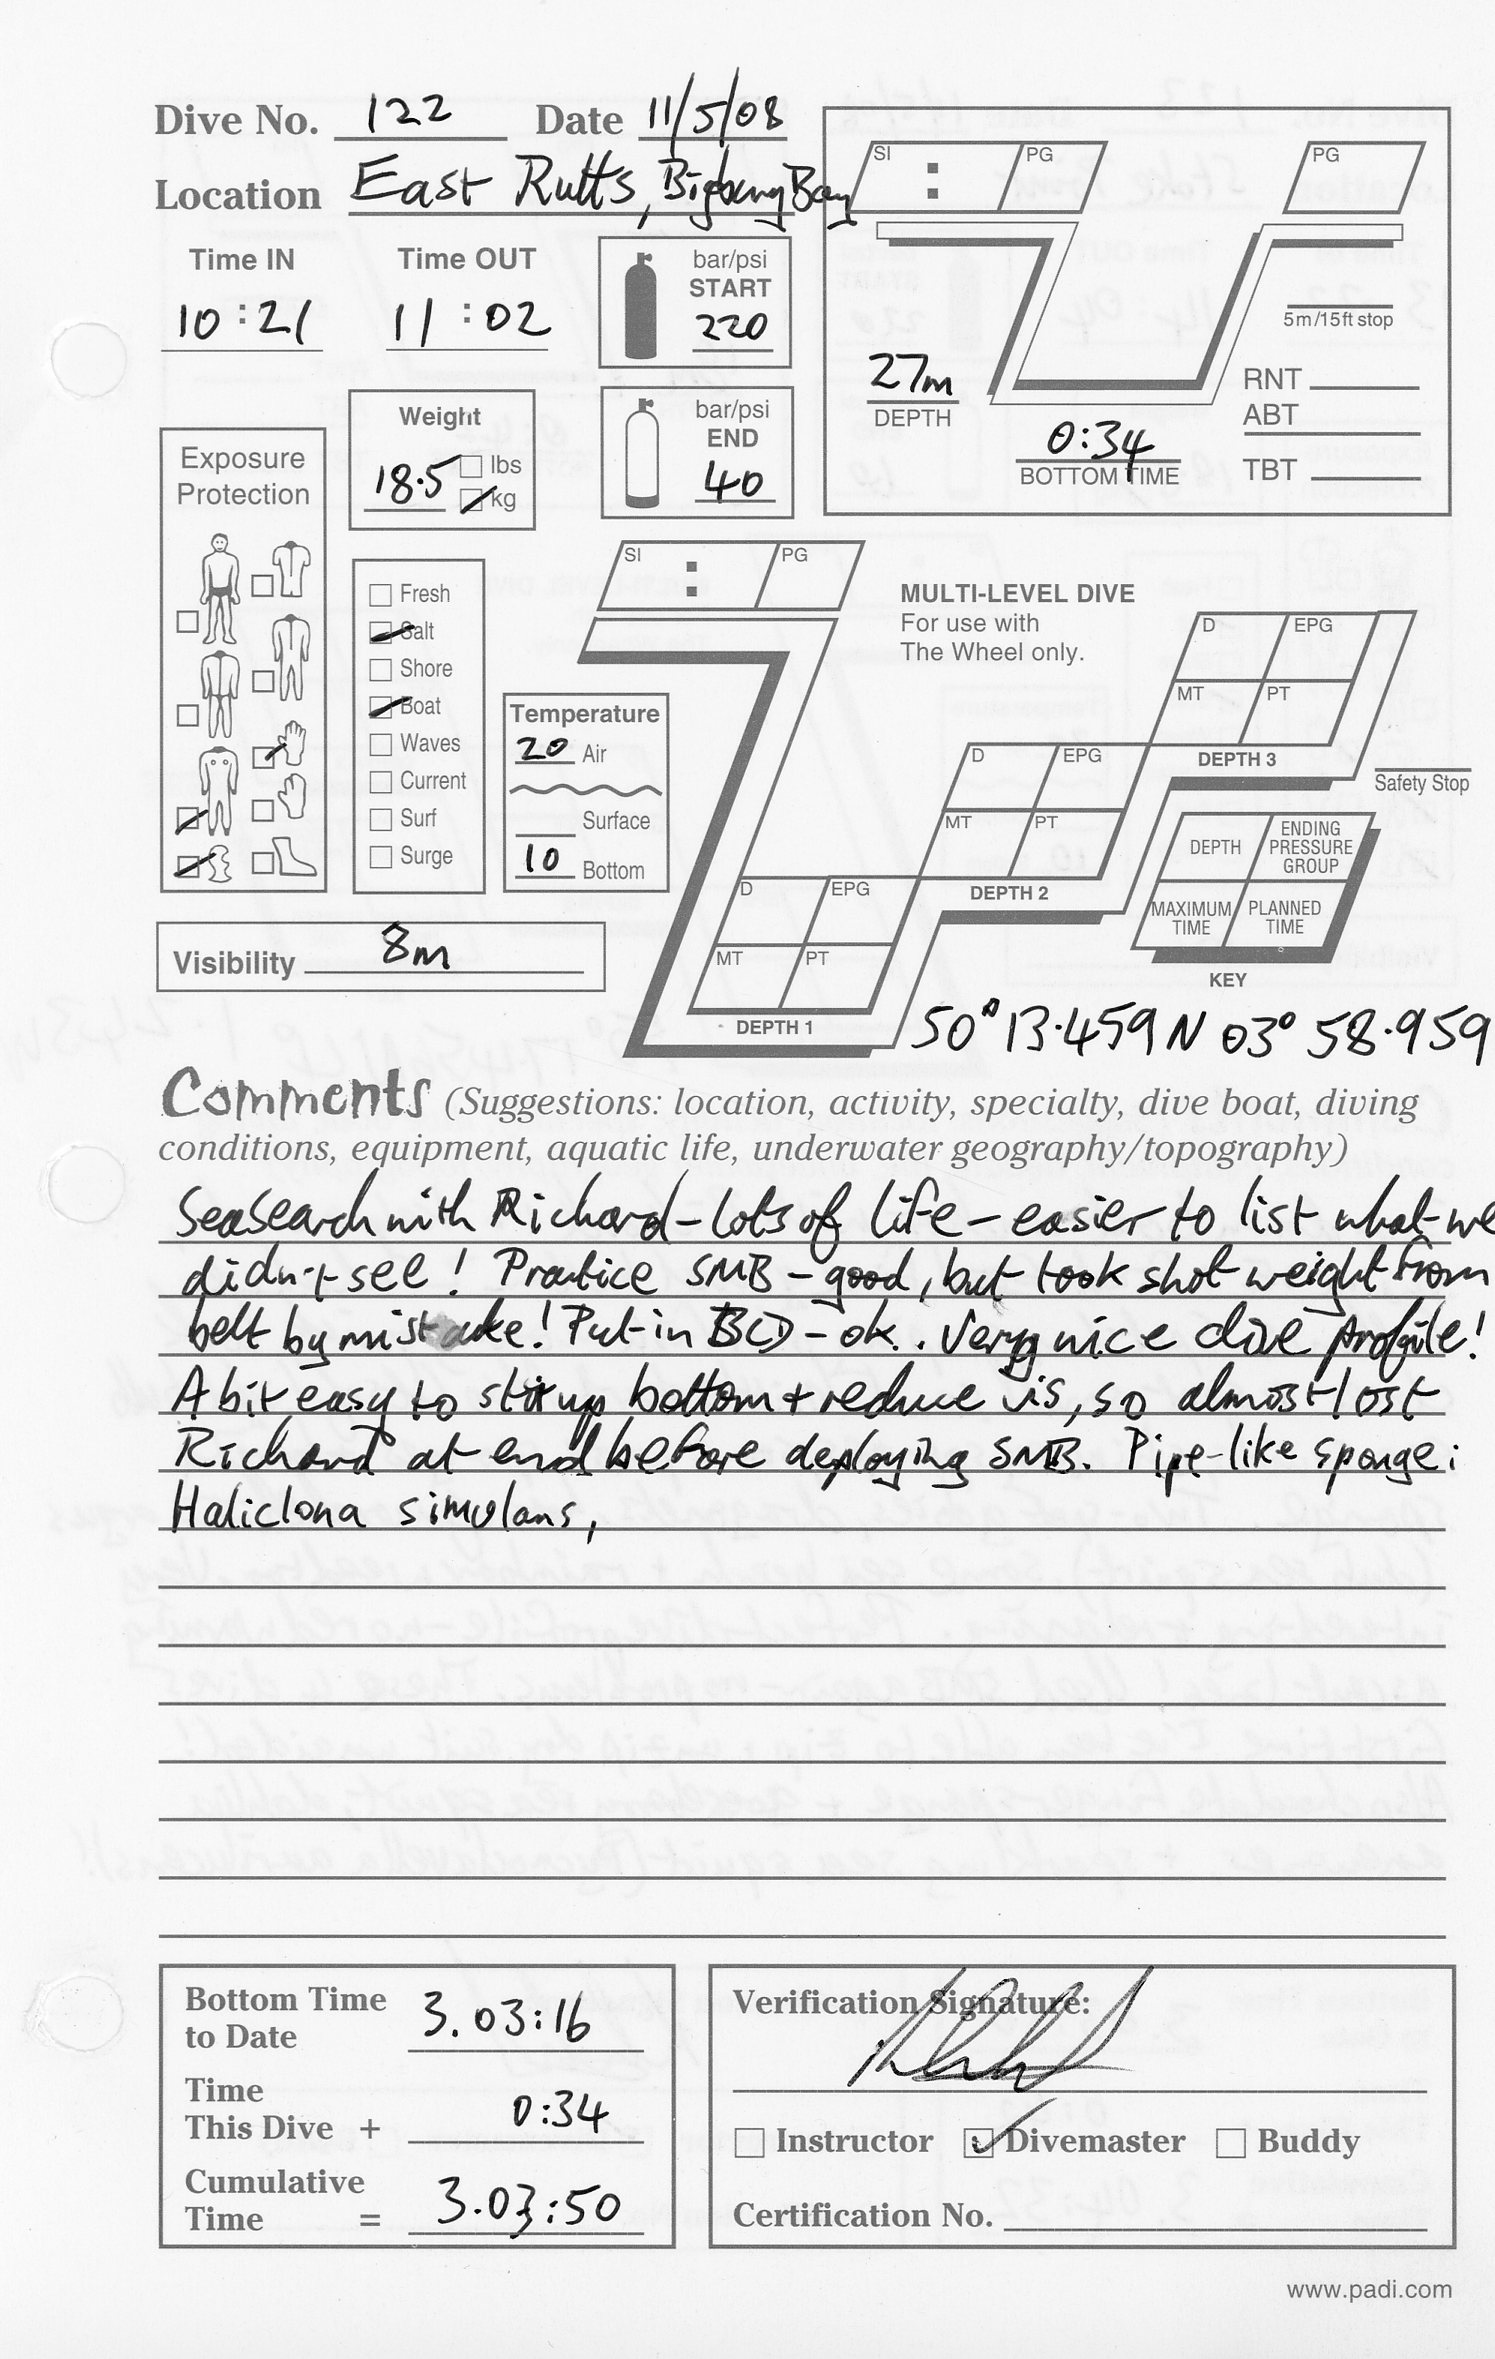 Dive No. 122 Date 11/5/08
Location East Rutts, Bigbury Bay
Time IN Time OUT
10:21 11:02
bar/psi
START
220
bar/psi
END
40
SI : PG PG
5m/15ft stop
27m
DEPTH
0:34
BOTTOM TIME
RNT
ABT
TBT
Weight
18.5 lbs
kg
Exposure
Protection
Fresh
Salt
Shore
Boat
Waves
Current
Surf
Surge
Temperature
20 Air
Surface
10 Bottom
SI : PG
MULTI-LEVEL DIVE
For use with
The Wheel only.
D EPG
MT PT
DEPTH 3
Safety Stop
D EPG
MT PT
DEPTH 2
D EPG
MT PT
DEPTH 1
DEPTH ENDING PRESSURE GROUP
MAXIMUM TIME PLANNED TIME
KEY
Visibility 8m
50° 13.459 N 03° 58.959
Comments (Suggestions: location, activity, specialty, dive boat, diving
conditions, equipment, aquatic life, underwater geography/topography)
Seasearch with Richard - lots of life - easier to list what we
didn't see! Practice SMB - good, but took shot weight from
belt by mistake! Put in BCD - ok. Very nice dive profile!
A bit easy to stir up bottom + reduce vis, so almost lost
Richard at end before deploying SMB. Pipe-like sponge:
Haliclona simulans,
Bottom Time
to Date 3.03:16
Time
This Dive + 0:34
Cumulative
Time = 3.03:50
Verification Signature:
Instructor Divemaster Buddy
Certification No.
www.padi.com